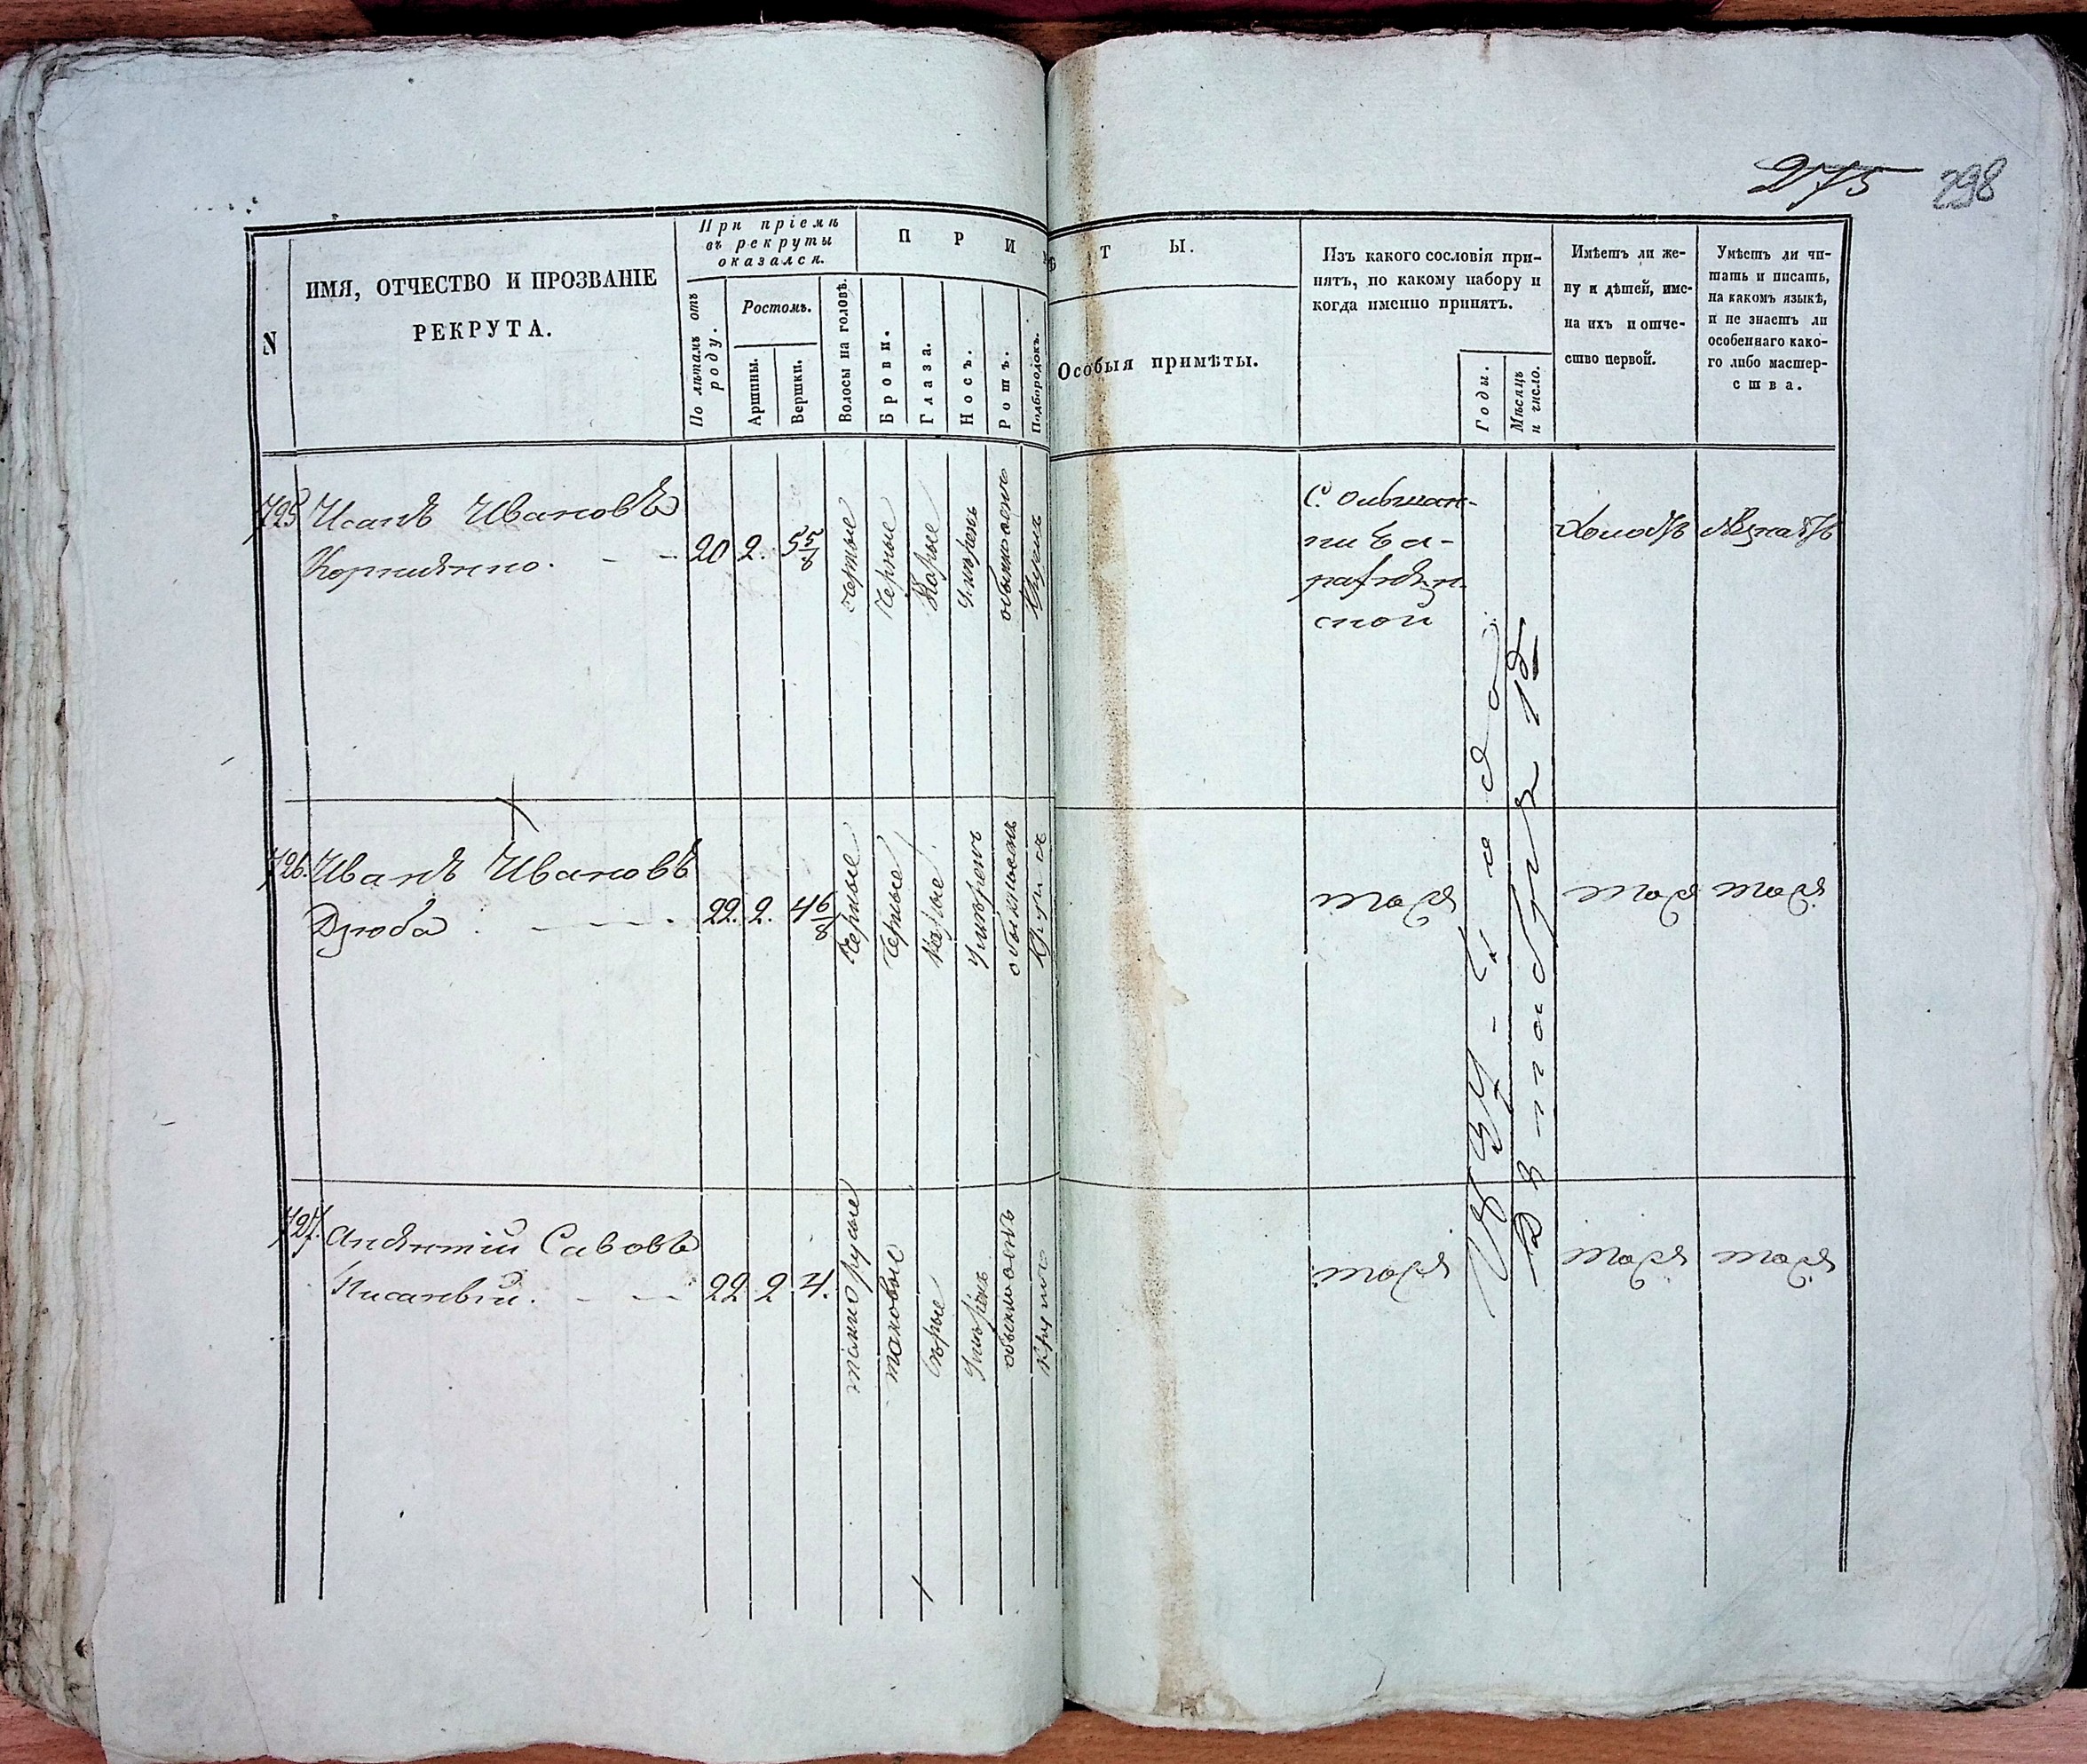 275 298
N
ИМЯ, ОТЧЕСТВО И ПРОЗВАНІЕ
РЕКРУТА.
При пріемѣ
въ рекруты
оказался.
По лѣтамъ отъ
роду.
Ростомъ.
Аршины.
Вершки.
П Р И М Ѣ Т Ы.
Волосы на головѣ.
Брови.
Глаза.
Носъ.
Ротъ.
Подбородокъ.
Особыя примѣты.
Изъ какого сословія при-
нятъ, по какому набору и
когда именно принятъ.
Годы.
Мѣсяцъ
и число.
Имѣетъ ли же-
ну и дѣтей, име-
на ихъ и отче-
ство первой.
Умѣетъ ли чи-
тать и писать,
на какомъ языкѣ,
и не знаетъ ли
особеннаго како-
го либо мастер-
ства.
725 Исакъ Ивановъ
20 2. 5 5/8
Черные
Черные
Карые
Умѣренъ
обыкновенъ
Круглъ
С. Ольшан-
ки
ской
Холостъ
726. Иванъ Ивановъ
Дзюба 22. 2. 4 6/8
Черные
Черные
Карые
Умѣренъ
обыкновенъ
Круглъ
тоже
тоже
тоже
727. Савовъ
Писаный. 22 2 4.
темнорусые
таковые
Сѣрые
Умѣренъ
обыкновенъ
Круглъ
тоже
тоже
тоже
года
12